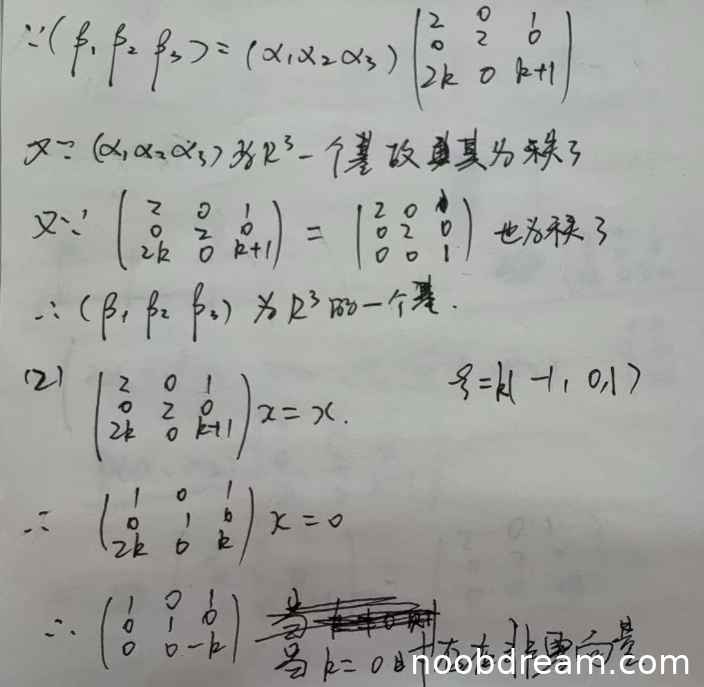 ∵(β₁ β₂ β₃)=(α₁α₂α₃)
2 0 1
0 2 0
2k 0 k+1
又∵ (α₁α₂α₃)为R³一个基 故其为秩3
又∵
2 0 1
0 2 0
2k 0 k+1
=
2 0 1
0 2 0
0 0 1
也为秩3
∴(β₁ β₂ β₃)为R³的一个基.
(2)
2 0 1
0 2 0
2k 0 k+1
x=x.
ξ=k(-1, 0,1)
∴
1 0 1
0 1 0
2k 0 k
x=0
∴
1 0 1
0 1 0
0 0 -k
当k=0时存在非零向量
noobdream.com